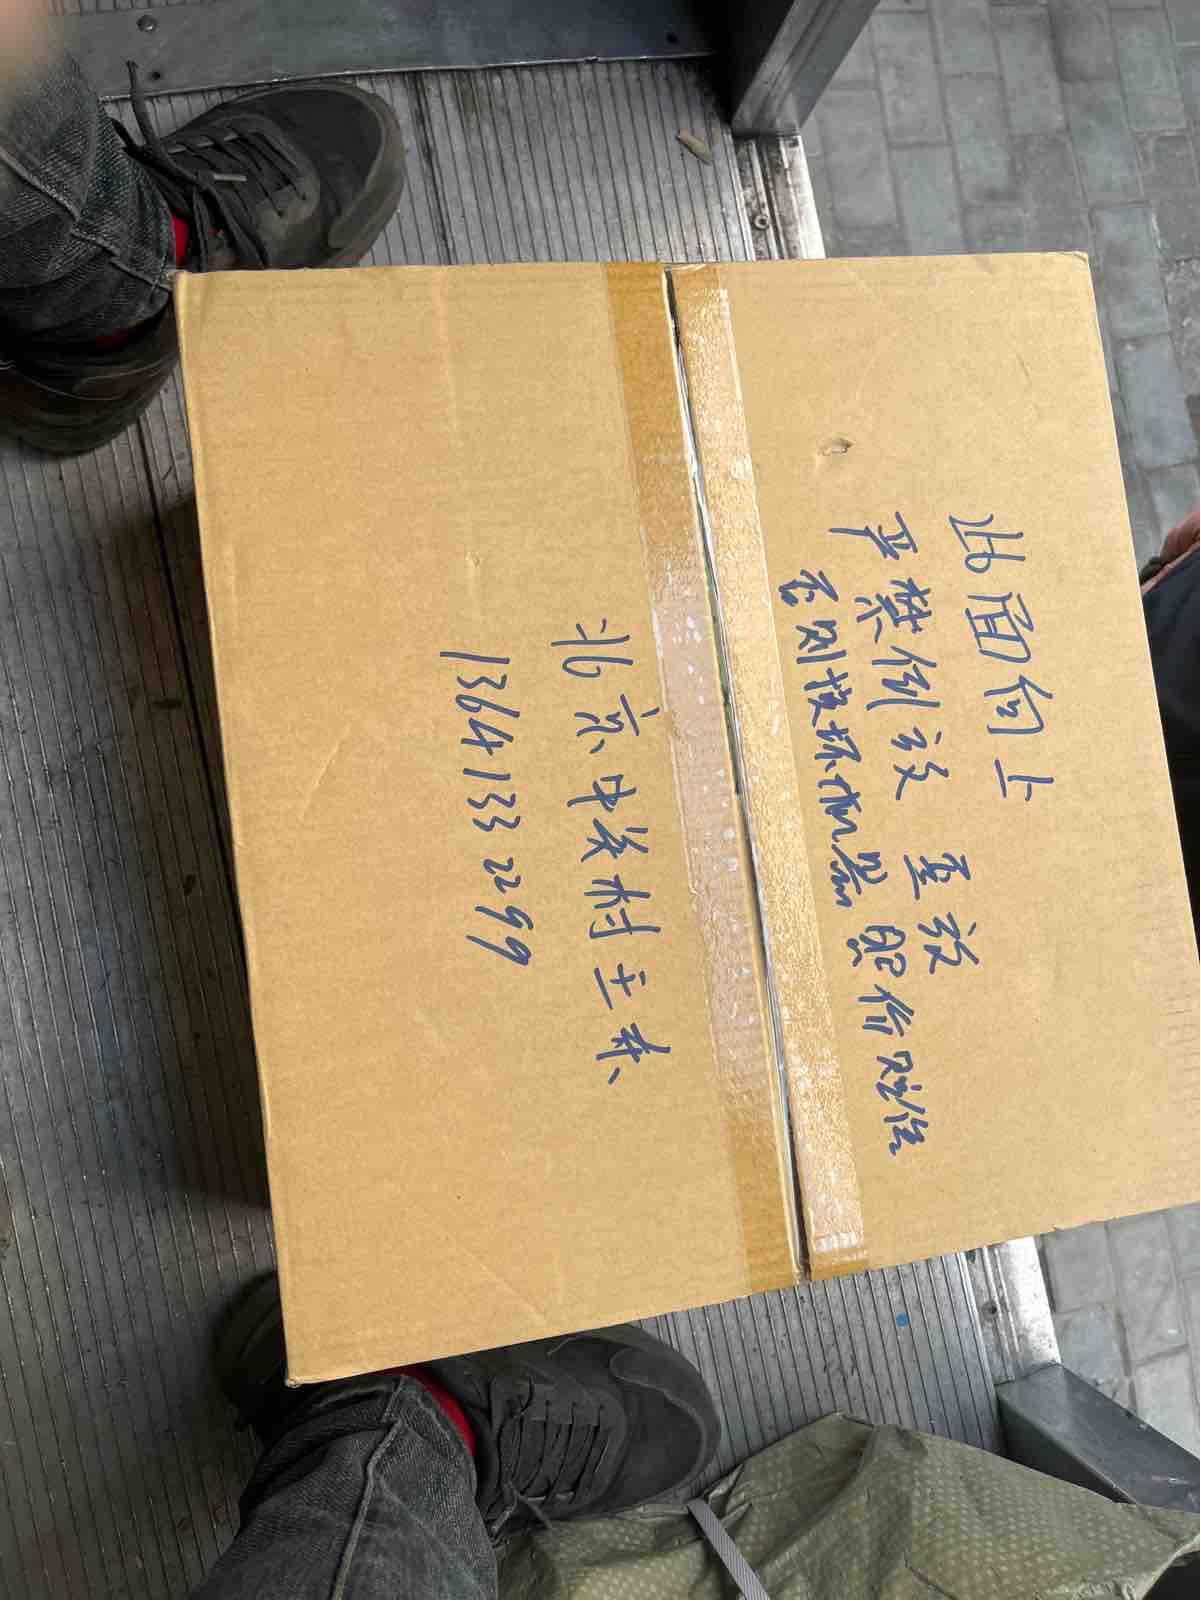 此面向上
严禁倒放 重放
否则损坏机器 照价赔偿
北京中关村王林
13641332299